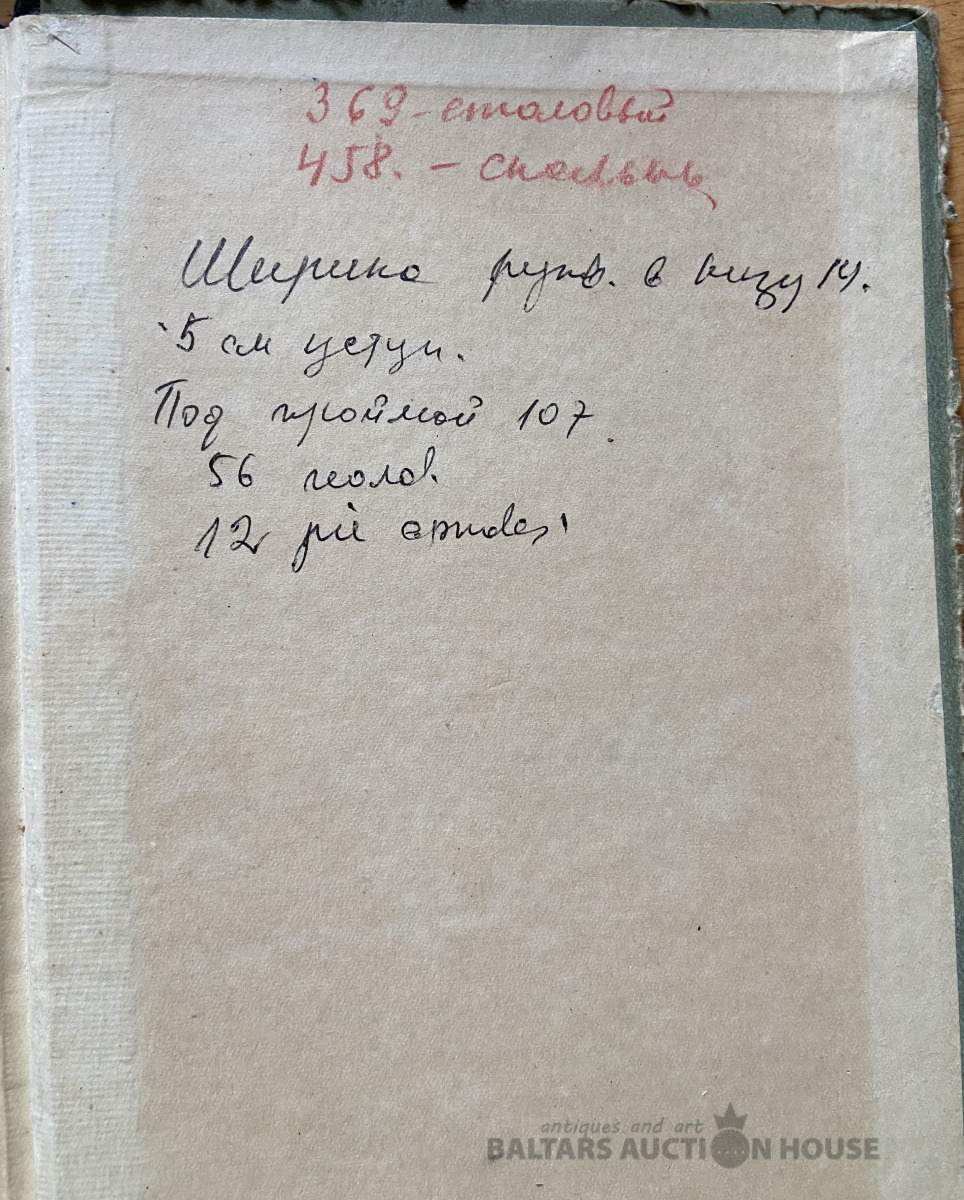 369 - столовый
458. - спальнь
Ширина рукв. в низу 14.
5 см уступ.
Под проймой 107.
56 голов.
12
antiques and art
BALTARS AUCTION HOUSE